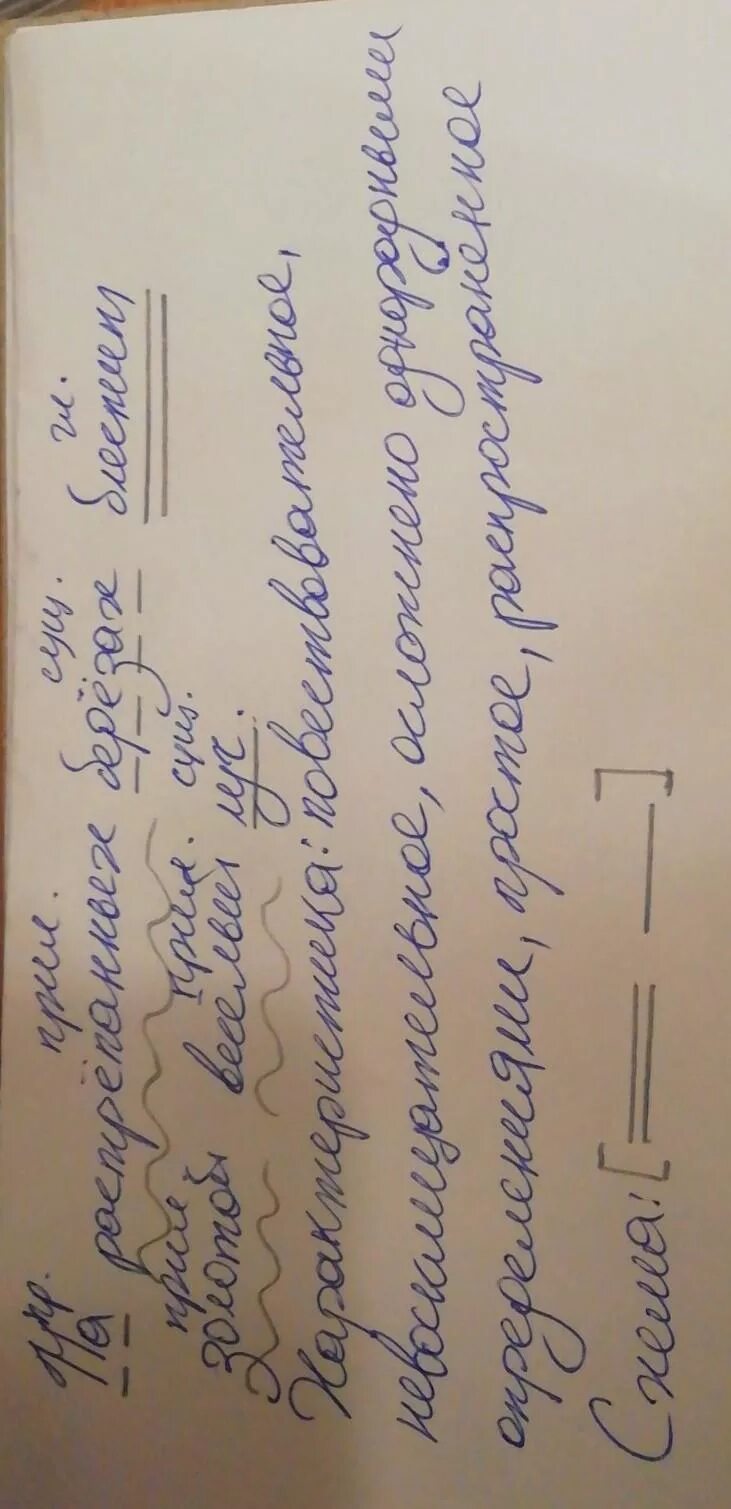 пр. прил. сущ. гл.
На растрёпанных берёзах блестит
прил прил. сущ.
Золотой весёлый луч.
Характеристика: повествовательное,
невосклицательное, осложнено однородными
определениями, простое, распространенное
Схема: [ ═ — ]